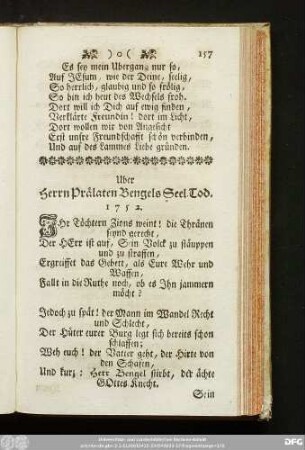 )o(
157
Es sey mein Ubergang nur so,
Auf JEsum, wie der Deine, seelig,
So herrlich, glaubig und so frölig,
So bin ich heut des Wechsels froh.
Dort will ich Dich auf ewig finden,
Verklärte Freundin! dort im Licht,
Dort wollen wir von Angesicht
Erst unsre Freundschafft schön verbinden,
Und auf des Lammes Liebe gründen.
Uber
Herrn Prälaten Bengels Seel. Tod.
1752.
IHr Töchtern Zions weint! die Thränen
seynd gerecht,
Der HErr ist auf, Sein Volck zu stäuppen
und zu straffen,
Ergreiffet das Gebett, als Eure Wehr und
Waffen,
Fallt in die Ruthe noch, ob es Ihn jammern
möcht?
Jedoch zu spät! der Mann im Wandel Recht
und Schlecht,
Der Hüter eurer Burg legt sich bereits schon
schlaffen;
Weh euch! der Vatter geht, der Hirte von
den Schafen,
Und kurz: Herr Bengel stirbt, der ächte
GOttes Knecht.
Sein